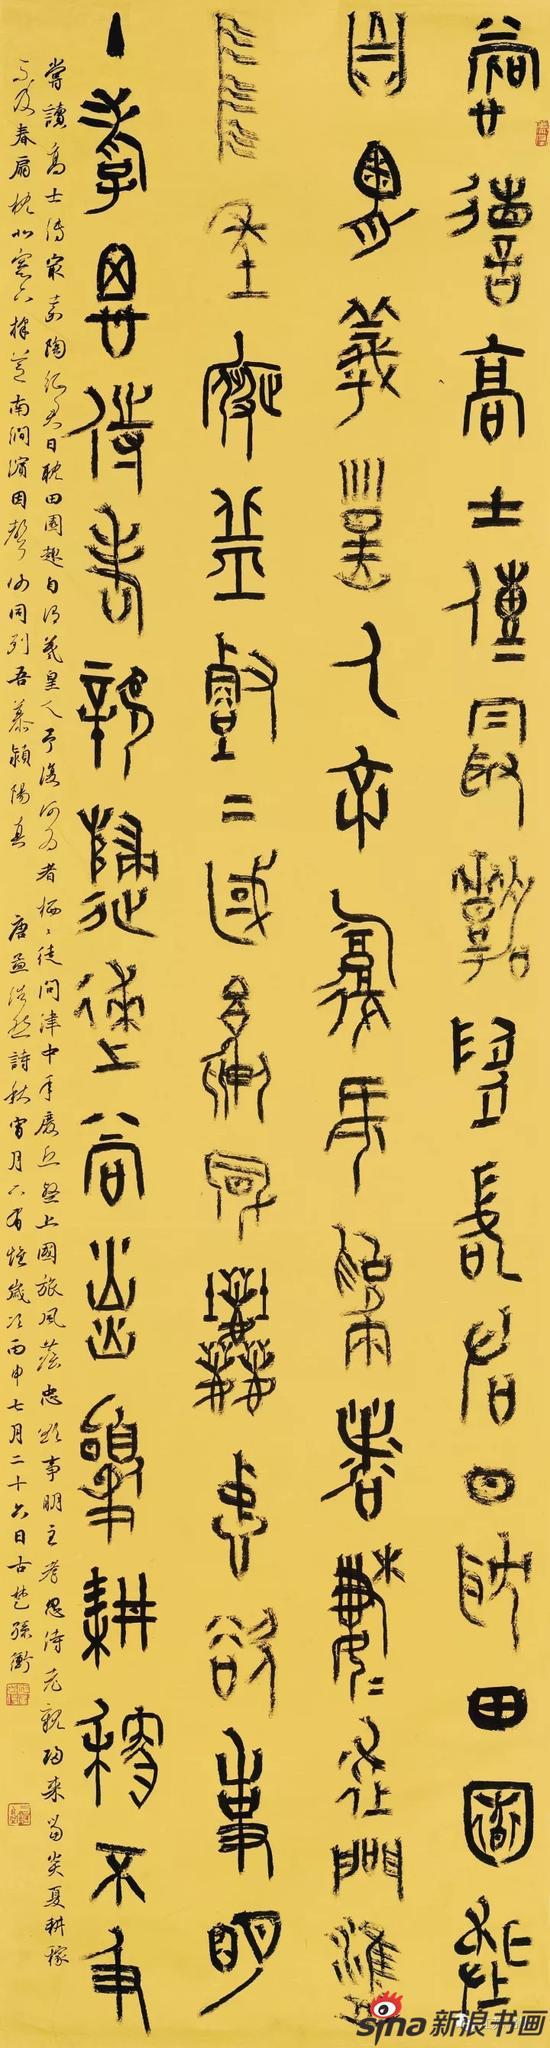 嘗讀高士傳最嘉陶徵君日耽田園趣
自得羲皇人予復何為者棲〻徒問津
中年廢丘壑上國旅風塵忠欲事明
主孝思侍老親歸來當炎夏耕稼不及
嘗讀高士傳最嘉陶徵君日耽田園趣自得羲皇人予復何為者栖〻徒問津中年廢丘壑上國旅風塵忠欲事明主孝思侍老親歸來當炎夏耕稼
不及春扇枕北窗下採芝南澗濱因聲謝同列吾慕潁陽真 唐孟浩然詩秋宵月下有懷歲次丙申七月二十六日古楚孫衡
sina新浪书画